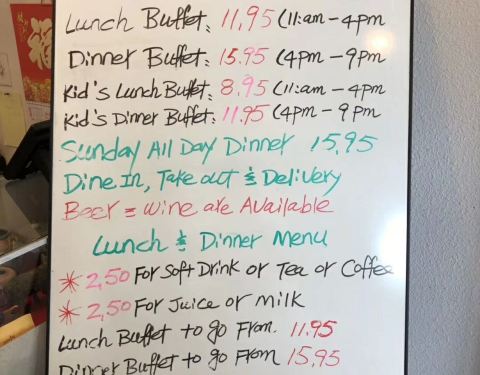 Lunch Buffet: 11,95 (11:am - 4pm
Dinner Buffet: 15.95 (4pm - 9pm
Kid's Lunch Buffet: 8,95 (11:am - 4pm
Kid's Dinner Buffet: 11.95 (4pm - 9pm
Sunday All Day Dinner 15,95
Dine In, Take out & Delivery
Beer = wine are Available
Lunch & Dinner Menu
* 2,50 For Soft Drink or Tea or Coffee
* 2,50 For Juice or milk
Lunch Buffet to go From. 11.95
Dinner Buffet to go From 15,95